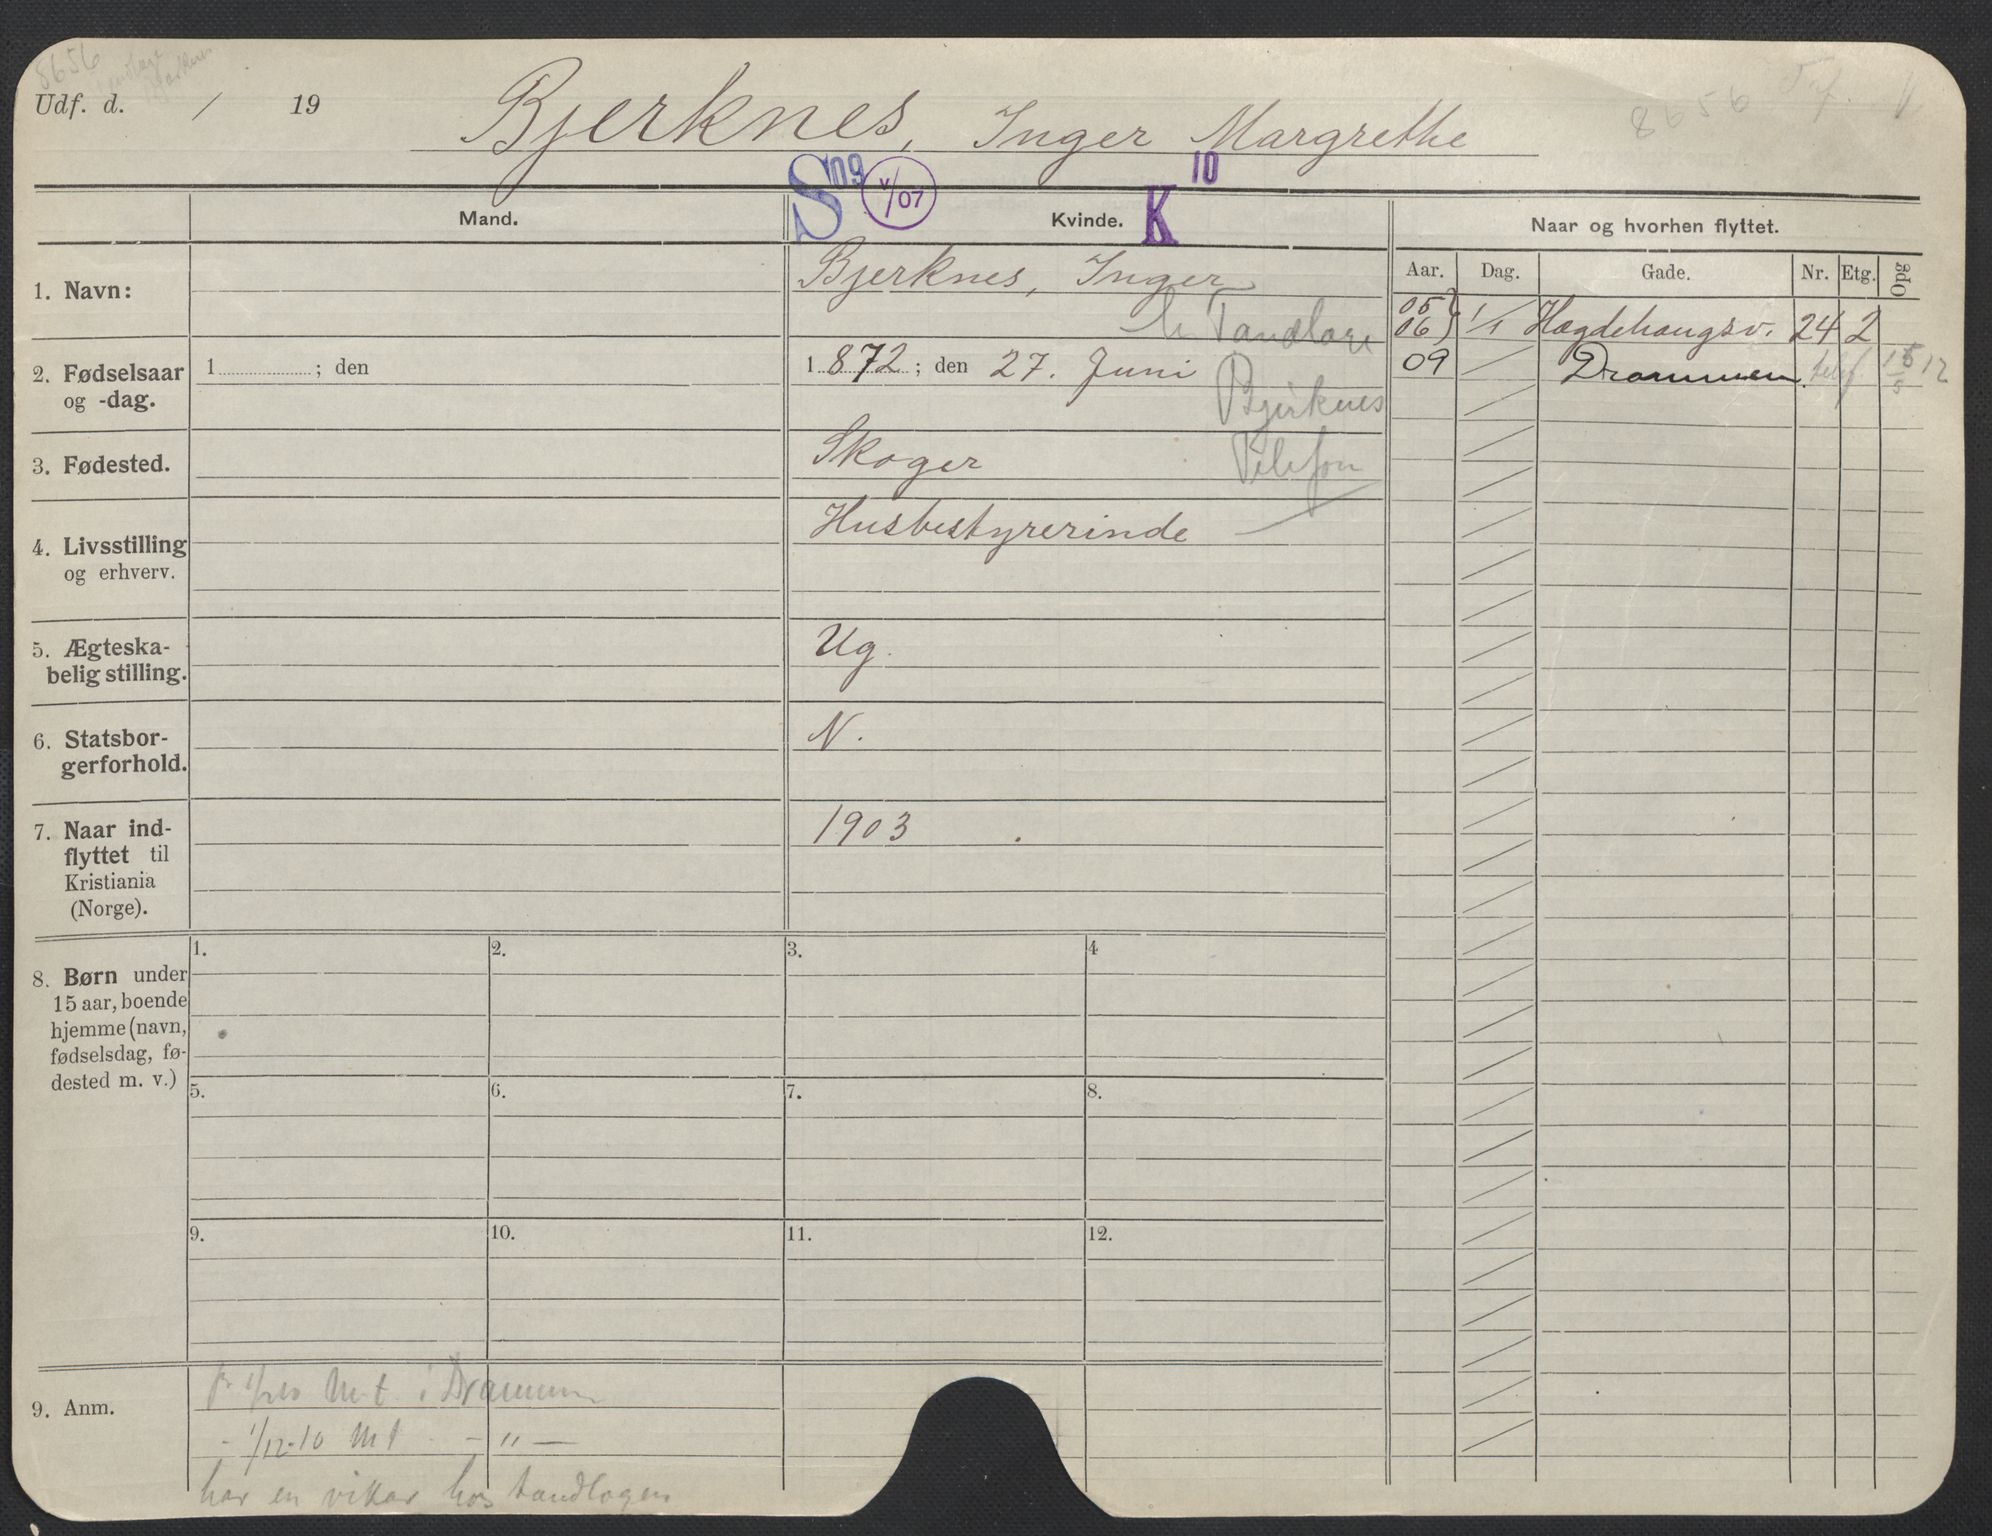 8656
Udf. d. / 19
Bjerknes, Inger Margrethe
8656
S 09
V/07
K 10
Mand.
Kvinde.
Naar og hvorhen flyttet.
Aar. Dag. Gade. Nr. Etg. Opg
1. Navn:
Bjerknes, Inger
Tandlæge
Bjerknes
Telefon
05
06 } 1/1 Hægdehaugsv. 24 2
09 Drammen. telef. 15/5 12
2. Fødselsaar
og -dag.
1 ; den
1 872 ; den 27. Juni
3. Fødested.
Skoger
4. Livsstilling
og erhverv.
Husbestyrerinde
5. Ægteska-
belig stilling.
Ug.
6. Statsbor-
gerforhold.
N.
7. Naar ind-
flyttet til
Kristiania
(Norge).
1903
8. Børn under
15 aar, boende
hjemme (navn,
fødselsdag, fø-
dested m. v.)
1. 2. 3. 4
5. 6. 7. 8.
9. 10. 11. 12.
9. Anm.
Mt. i Drammen
- 1/12-10 Mt - - " -
har en vikar hos tandlægen